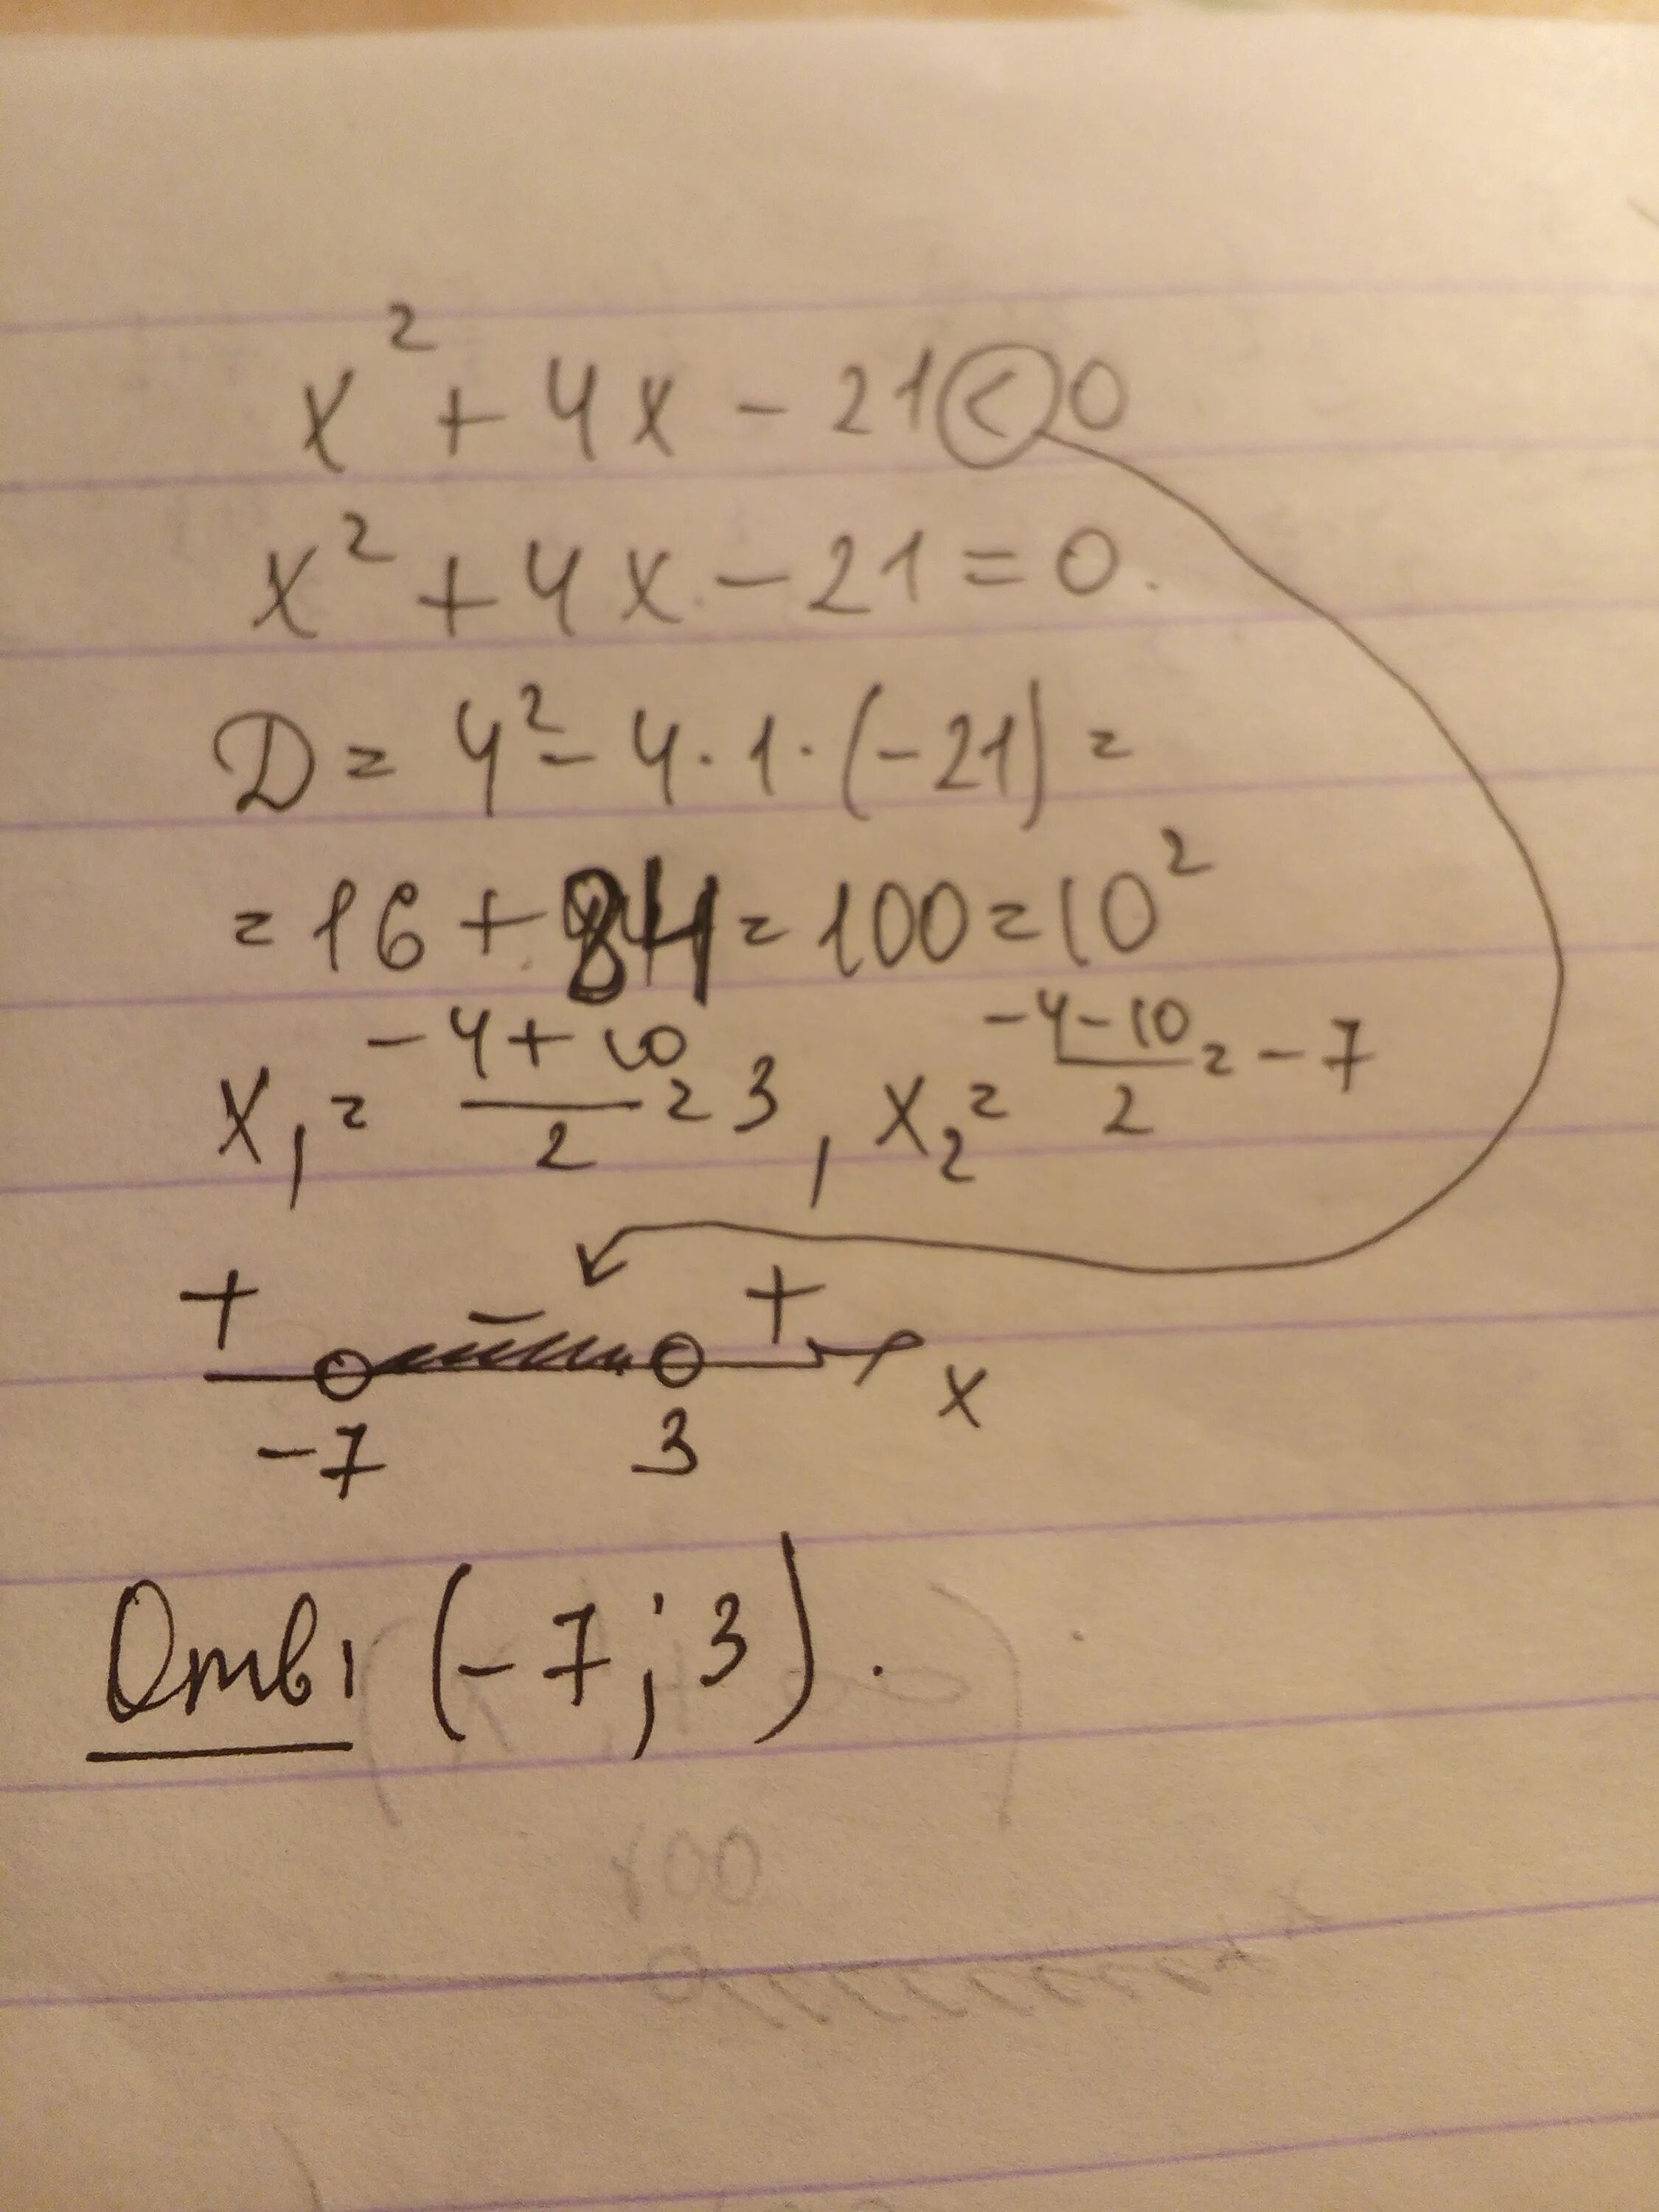 x² + 4x - 21 < 0
x² + 4x - 21 = 0.
D = 4² - 4 · 1 · (-21) =
= 16 + 84 = 100 = 10²
x₁ = (-4 + 10)/2 = 3, x₂ = (-4 - 10)/2 = -7
+ - +
x
-7 3
Отв: (-7; 3).